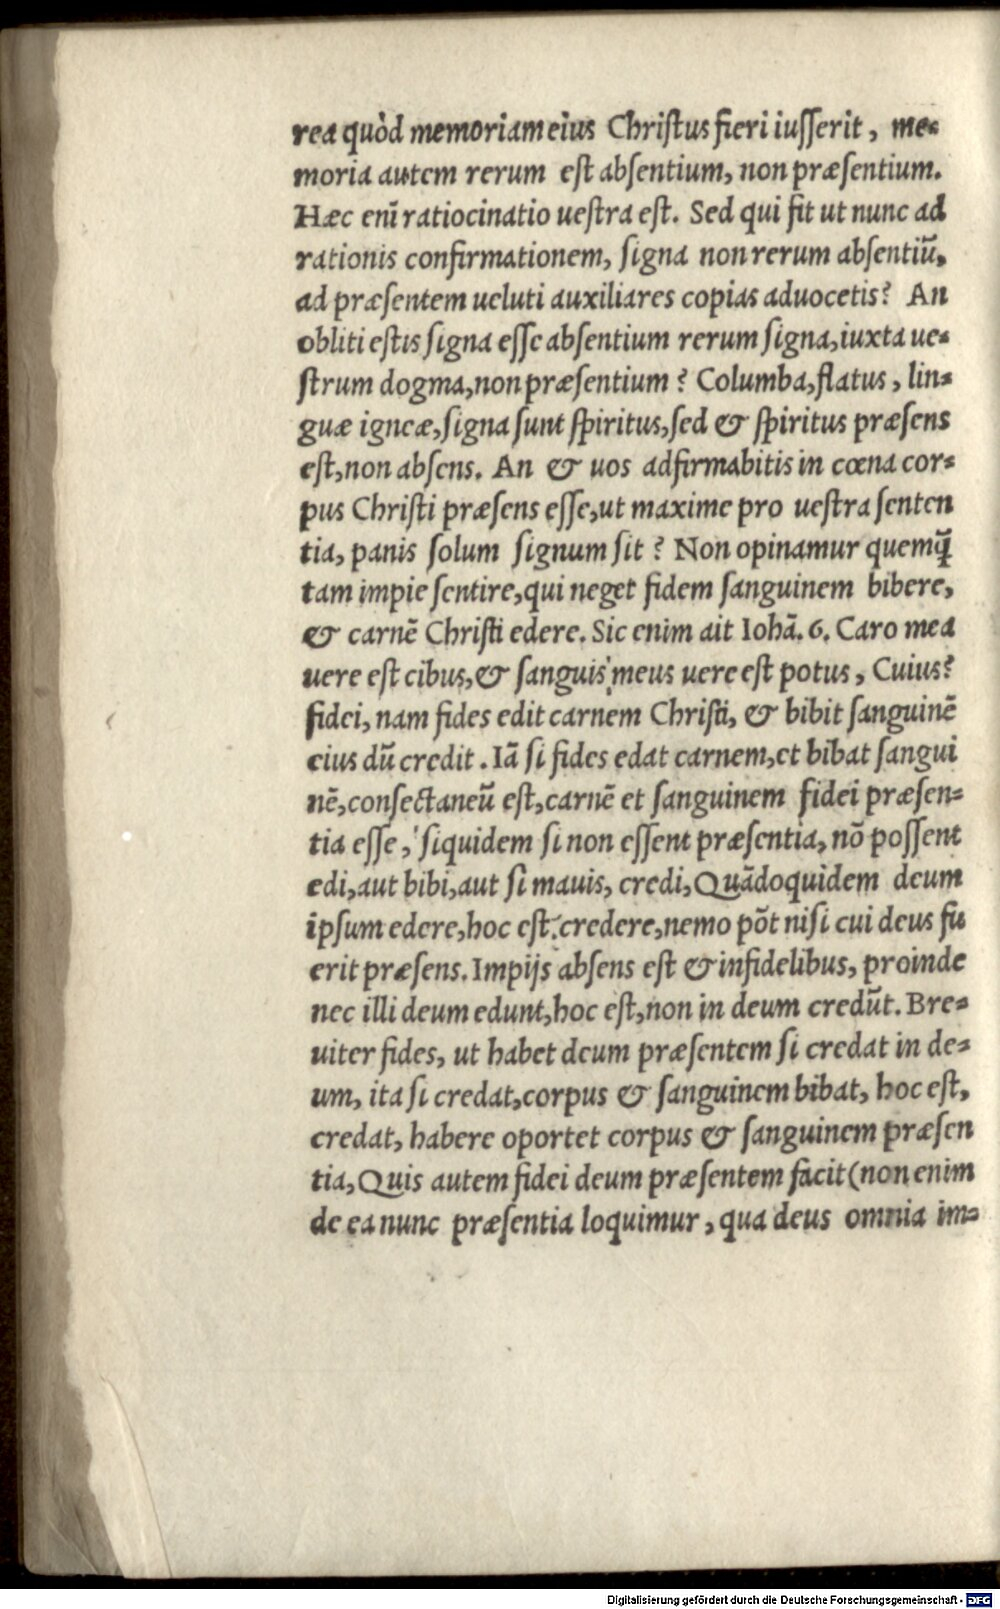 rea quòd memoriam eius Chriſtus fieri iuſſerit, me-
moria autem rerum eſt abſentium, non præſentium.
Hæc enĩ ratiocinatio ueſtra eſt. Sed qui fit ut nunc ad
rationis confirmationem, ſigna non rerum abſentiũ,
ad præſentem ueluti auxiliares copias aduocetis? An
obliti eſtis ſigna eſſe abſentium rerum ſigna, iuxta ue-
ſtrum dogma, non præſentium? Columba, flatus, lin-
guæ igneæ, ſigna ſunt ſpiritus, ſed & ſpiritus præſens
eſt, non abſens. An & uos adfirmabitis in cœna cor-
pus Chriſti præſens eſſe, ut maxime pro ueſtra ſenten
tia, panis ſolum ſignum ſit? Non opinamur quemꝗ̃
tam impie ſentire, qui neget fidem ſanguinem bibere,
& carnẽ Chriſti edere. Sic enim ait Iohã. 6. Caro mea
uere eſt cibus, & ſanguis meus uere eſt potus, Cuius?
fidei, nam fides edit carnem Chriſti, & bibit ſanguinẽ
eius dũ credit. Iã ſi fides edat carnem, et bibat ſangui
nẽ, conſectaneũ eſt, carnẽ et ſanguinem fidei præſen-
tia eſſe, ſiquidem ſi non eſſent præſentia, nõ poſſent
edi, aut bibi, aut ſi mauis, credi, Quãdoquidem deum
ipſum edere, hoc eſt, credere, nemo põt niſi cui deus fu
erit præſens. Impijs abſens eſt & infidelibus, proinde
nec illi deum edunt, hoc eſt, non in deum credũt. Bre-
uiter fides, ut habet deum præſentem ſi credat in de-
um, ita ſi credat, corpus & ſanguinem bibat, hoc eſt,
credat, habere oportet corpus & ſanguinem præſen
tia, Quis autem fidei deum præſentem facit (non enim
de ea nunc præſentia loquimur, qua deus omnia im-
Digitalisierung gefördert durch die Deutsche Forschungsgemeinschaft - DFG